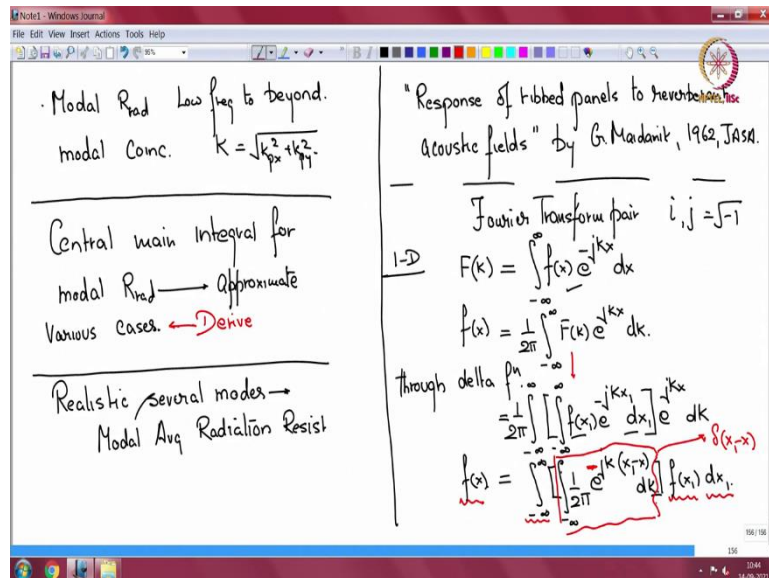 Note1 - Windows Journal
File Edit View Insert Actions Tools Help
95%
B I
NPTEL, IISc
· Modal R_rad Low freq to beyond.
modal Coinc. K = √(k_px² + k_py²).
Central main Integral for
modal R_rad → Approximate
Various Cases. ← Derive
Realistic / several modes →
Modal Avg Radiation Resist
"Response of ribbed panels to reverberant
acoustic fields" by G. Maidanik, 1962, JASA.
Fourier Transform pair i, j = √-1
1-D F(k) = ∫_{-∞}^{∞} f(x) e^{-jkx} dx
f(x) = 1/2π ∫_{-∞}^{∞} F(k) e^{jkx} dk.
through delta fⁿ.
= 1/2π ∫_{-∞}^{∞} [∫_{-∞}^{∞} f(x₁) e^{-jkx₁} dx₁] e^{jkx} dk
f(x) = ∫_{-∞}^{∞} [∫_{-∞}^{∞} 1/2π e^{-jk(x₁-x)} dk] f(x₁) dx₁.
δ(x₁-x)
156/156
156
10:44
14-09-2021